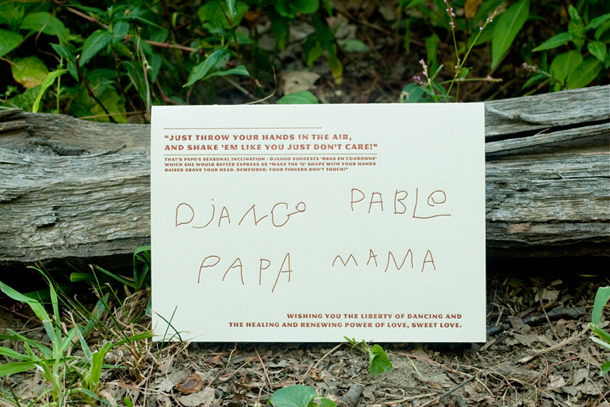 "JUST THROW YOUR HANDS IN THE AIR,
AND SHAKE 'EM LIKE YOU JUST DON'T CARE!"
THAT'S PAPE'S SEASONAL INCLINATION - DJANGO SUGGESTS 'BRAS EN COURONNE'
WHICH SHE WOULD BETTER EXPRESS AS "MAKE THE 'O' SHAPE WITH YOUR HANDS
RAISED ABOVE YOUR HEAD. REMEMBER: YOUR FINGERS DON'T TOUCH!"
DJANGO PABLO
PAPA MAMA
WISHING YOU THE LIBERTY OF DANCING AND
THE HEALING AND RENEWING POWER OF LOVE, SWEET LOVE.